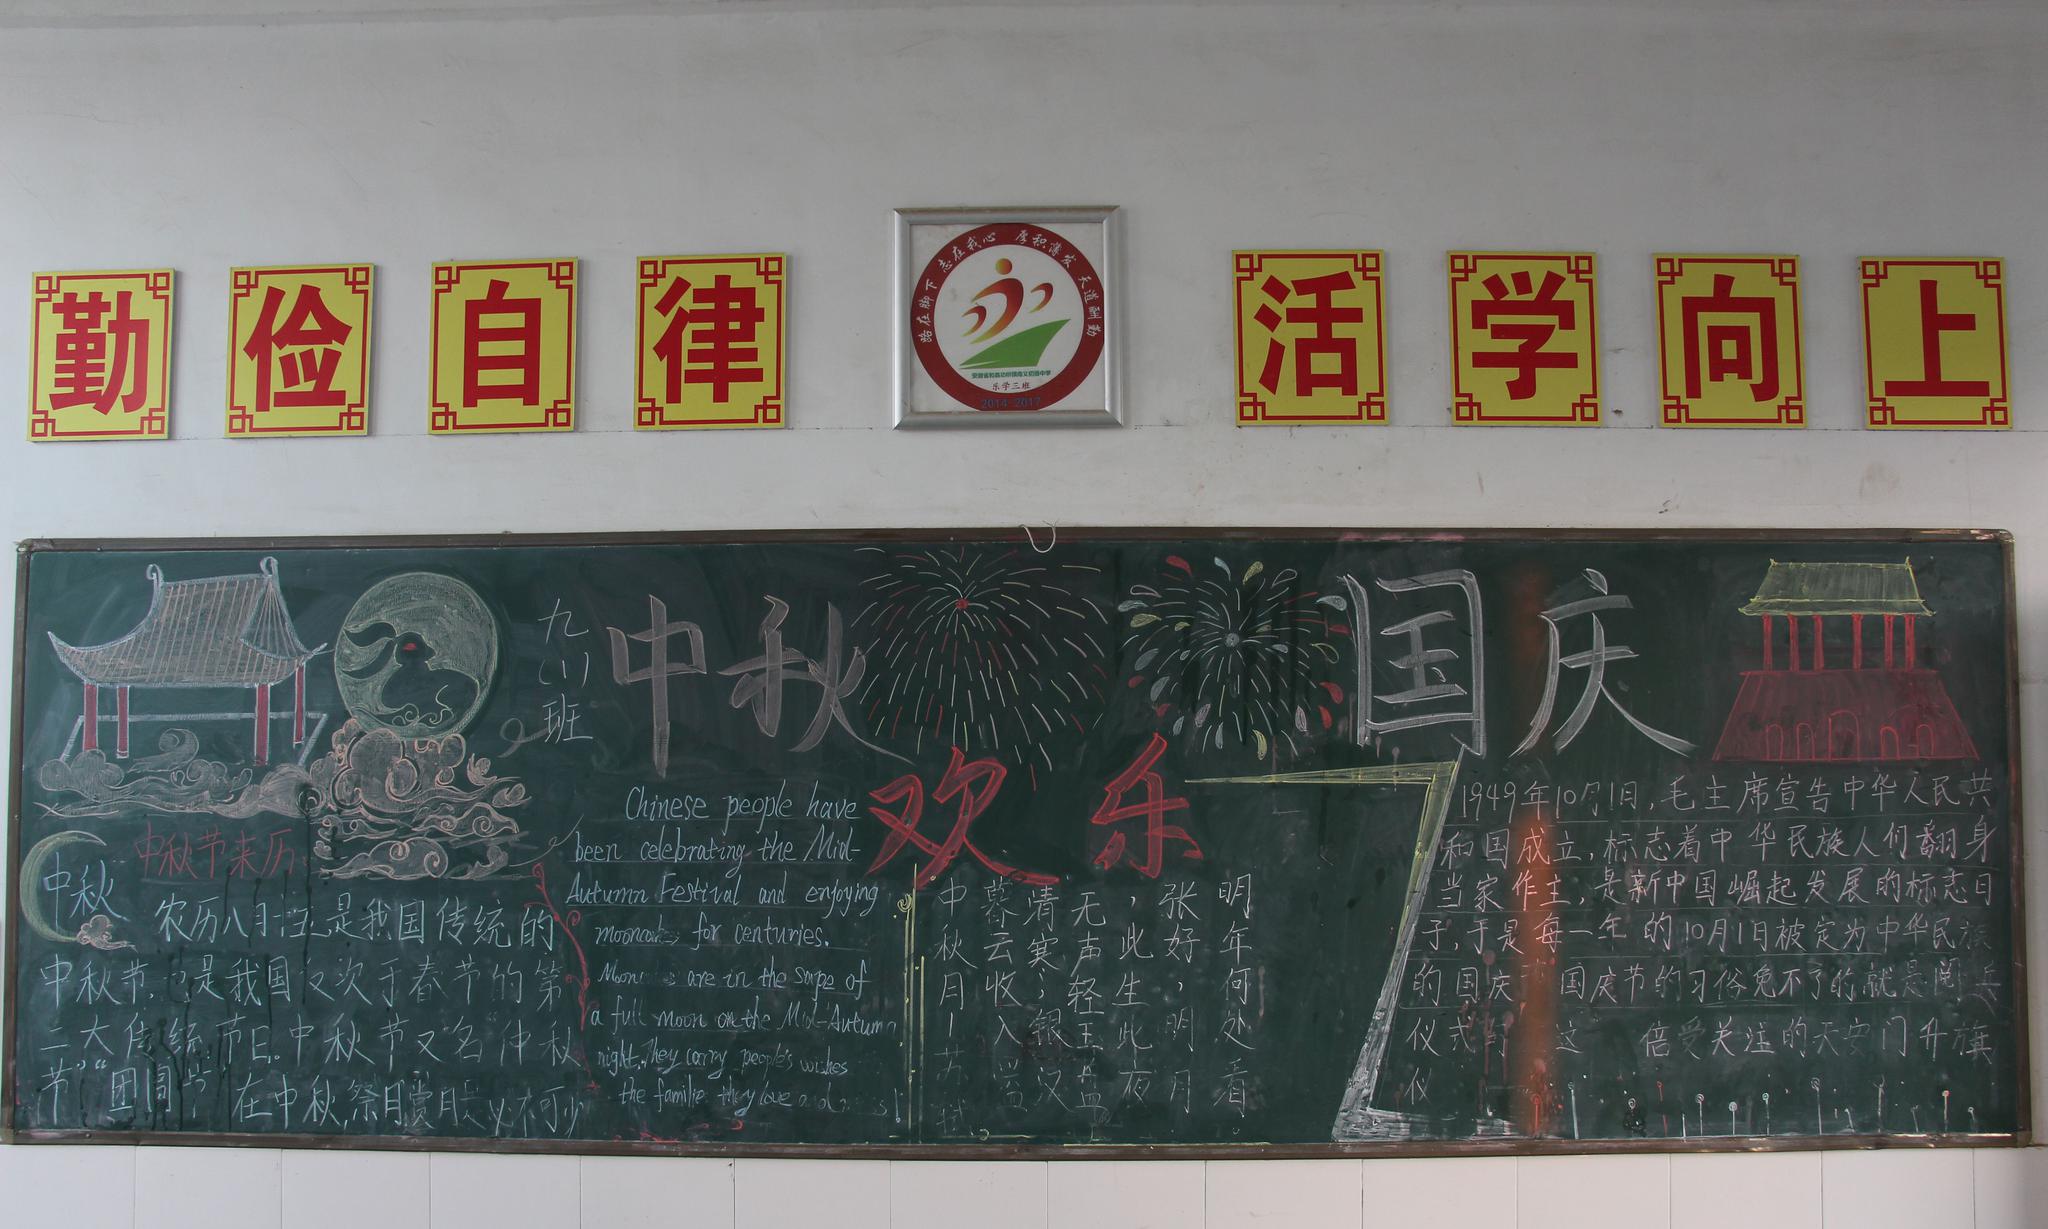 勤俭自律
路在脚下 志在我心 厚积薄发 天道酬勤
乐学三班
2014-2017
活学向上
九(1)班
中秋
国庆
欢乐
中秋节来历:
中秋
农历八月十五是我国传统的
中秋节,也是我国仅次于春节的第
二大传统节日。中秋节又名“仲秋
节”“团圆节”在中秋,祭月赏月是必不可少
Chinese people have
been celebrating the Mid-
Autumn Festival and enjoying
mooncakes for centuries.
are in the sape of
a full moon on the Mid-Autumn
night. They carry people's wishes
the familie they love and
中秋月-苏轼
暮云收入溢
清寒,银汉
无声轻玉盘
,此生此夜
张好,明月
明年何处看
1949年10月1日,毛主席宣告中华人民共
和国成立,标志着中华民族人们翻身
当家作主,是新中国崛起发展的标志日
子,于是每一年的10月1日被定为中华民族
的国庆 国庆节的习俗免不了的就是阅兵
仪式 这 倍受关注的天安门升旗
仪